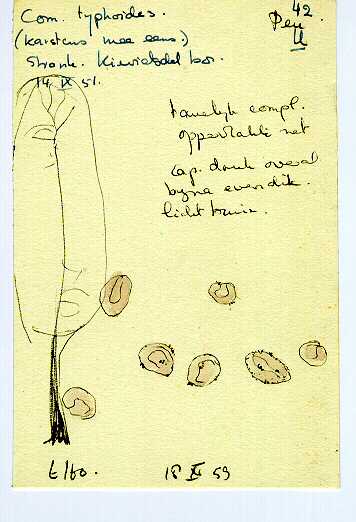 Com. typhoides.
(Karstens mee eens.)
Stronk. Kievietsdel bos.
14 IX 51.
42
Pen
U
tamelijk compl.
oppervlakte net
cap. draad overal
byna even dik.
licht bruin.
t/60.
18 XI 59